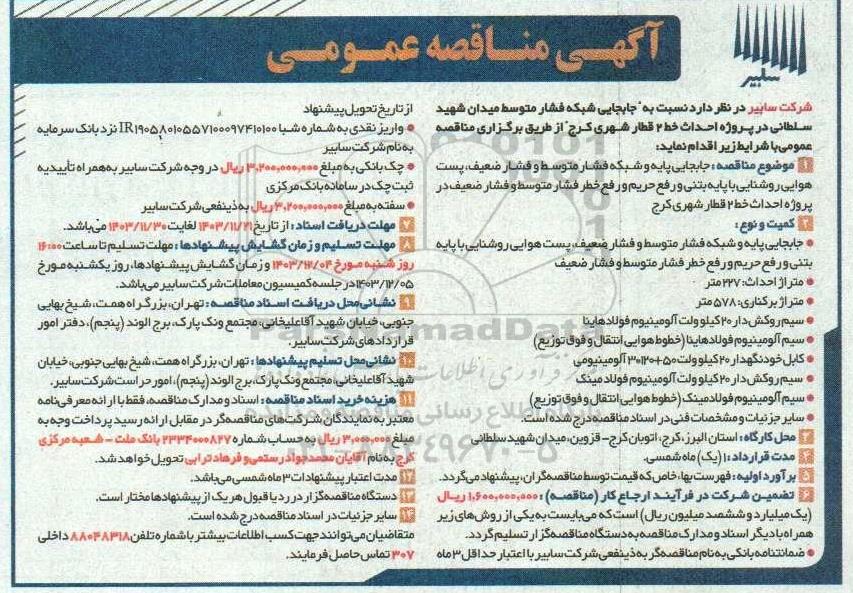 آگهی مناقصه عمومی
سابیر
شرکت سابیر در نظر دارد نسبت به "جابجایی شبکه فشار متوسط میدان شهید
سلطانی در پروژه احداث خط ۲ قطار شهری کرج" از طریق برگزاری مناقصه
عمومی با شرایط زیر اقدام نماید:
۱ موضوع مناقصه: جابجایی پایه و شبکه فشار متوسط و فشار ضعیف، پست
هوایی روشنایی با پایه بتنی و رفع حریم و رفع خطر فشار متوسط و فشار ضعیف در
پروژه احداث خط ۲ قطار شهری کرج
۲ کمیت و نوع:
• جابجایی پایه و شبکه فشار متوسط و فشار ضعیف، پست هوایی روشنایی با پایه
بتنی و رفع حریم و رفع خطر فشار متوسط و فشار ضعیف
• متراژ احداث: ۲۲۷ متر
• متراژ برکناری: ۵۷۸ متر
• سیم روکش‌دار ۲۰ کیلو ولت آلومینیوم فولاد هاینا
• سیم آلومینیوم فولاد هاینا (خطوط هوایی انتقال و فوق توزیع)
• کابل خودنگهدار ۲۰ کیلو ولت ۵۰+۱۲۰*۳ آلومینیومی
• سیم روکش‌دار ۲۰ کیلو ولت آلومینیوم فولاد مینک
• سیم آلومینیوم فولاد مینک (خطوط هوایی انتقال و فوق توزیع)
• سایر جزئیات و مشخصات فنی در اسناد مناقصه درج شده است.
۳ محل کارگاه: استان البرز، کرج، اتوبان کرج - قزوین، میدان شهید سلطانی
۴ مدت قرارداد: ۱ (یک) ماه شمسی.
۵ برآورد اولیه: فهرست بها، خاص که قیمت توسط مناقصه‌گران، پیشنهاد می‌گردد.
۶ تضمین شرکت در فرآیند ارجاع کار (مناقصه): ۱,۶۰۰,۰۰۰,۰۰۰ ریال
(یک میلیارد و ششصد میلیون ریال) است که می‌بایست به یکی از روش‌های زیر
همراه با دیگر اسناد و مدارک مناقصه به دستگاه مناقصه‌گزار تسلیم گردد.
• ضمانتنامه بانکی به نام مناقصه‌گر به ذینفعی شرکت سابیر با اعتبار حداقل ۳ ماه
از تاریخ تحویل پیشنهاد
• واریز نقدی به شماره شبا IR۱۹۰۵۸۰۱۰۵۵۷۱۰۰۰۹۷۴۱۰۱۰۰ نزد بانک سرمایه
به نام شرکت سابیر
• چک بانکی به مبلغ ۳,۲۰۰,۰۰۰,۰۰۰ ریال در وجه شرکت سابیر به همراه تأییدیه
ثبت چک در سامانه بانک مرکزی
• سفته به مبلغ ۳,۲۰۰,۰۰۰,۰۰۰ ریال به ذینفعی شرکت سابیر
۷ مهلت دریافت اسناد: از تاریخ ۱۴۰۳/۱۱/۲۱ لغایت ۱۴۰۳/۱۱/۳۰ می‌باشد.
۸ مهلت تسلیم و زمان گشایش پیشنهادها: مهلت تسلیم تا ساعت ۱۶:۰۰
روز شنبه مورخ ۱۴۰۳/۱۲/۰۴ و زمان گشایش پیشنهادها، روز یکشنبه مورخ
۱۴۰۳/۱۲/۰۵ در جلسه کمیسیون معاملات شرکت سابیر می‌باشد.
۹ نشانی محل دریافت اسناد مناقصه: تهران، بزرگراه همت، شیخ بهایی
جنوبی، خیابان شهید آقاعلیخانی، مجتمع ونک پارک، برج الوند (پنجم)، دفتر امور
قراردادهای شرکت سابیر.
۱۰ نشانی محل تسلیم پیشنهادها: تهران، بزرگراه همت، شیخ بهایی جنوبی، خیابان
شهید آقاعلیخانی، مجتمع ونک پارک، برج الوند (پنجم)، امور حراست شرکت سابیر.
۱۱ هزینه خرید اسناد مناقصه: اسناد و مدارک مناقصه، فقط با ارائه معرفی‌نامه
معتبر به نمایندگان شرکت‌های مناقصه‌گر در مقابل ارائه رسید پرداخت وجه به
مبلغ ۳,۰۰۰,۰۰۰ ریال به حساب شماره ۲۲۳۴۰۰۰۸۲۷ بانک ملت - شعبه مرکزی
کرج به نام آقایان محمدجواد رستمی و فرهاد ترابی تحویل خواهد شد.
۱۲ مدت اعتبار پیشنهادات ۳ ماه شمسی می‌باشد.
۱۳ دستگاه مناقصه‌گزار در رد یا قبول هر یک از پیشنهادها مختار است.
۱۴ سایر جزئیات در اسناد مناقصه درج شده است.
متقاضیان می‌توانند جهت کسب اطلاعات بیشتر با شماره تلفن ۸۸۰۴۸۳۱۸ داخلی
۳۰۷ تماس حاصل فرمایند.
ParsNamadData